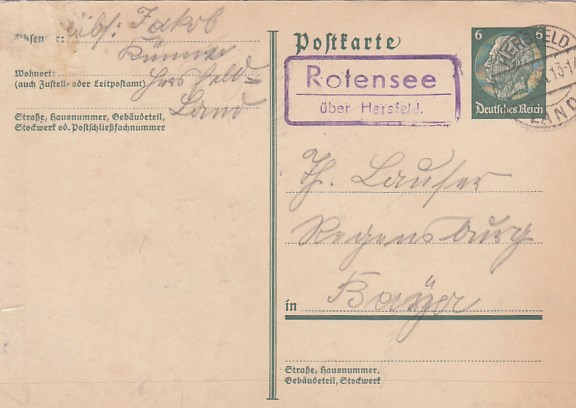 Absender: Jakob
Wohnort: Hersfeld-
(auch Zustell- oder Leitpostamt)
Land
Straße, Hausnummer, Gebäudeteil,
Stockwerk od. Postschließfachnummer
Postkarte
6 6
Deutsches Reich
HERSFELD
LAND
Rotensee
über Hersfeld.
Th. Laufer
Regensburg
in Bayer
Straße, Hausnummer,
Gebäudeteil, Stockwerk